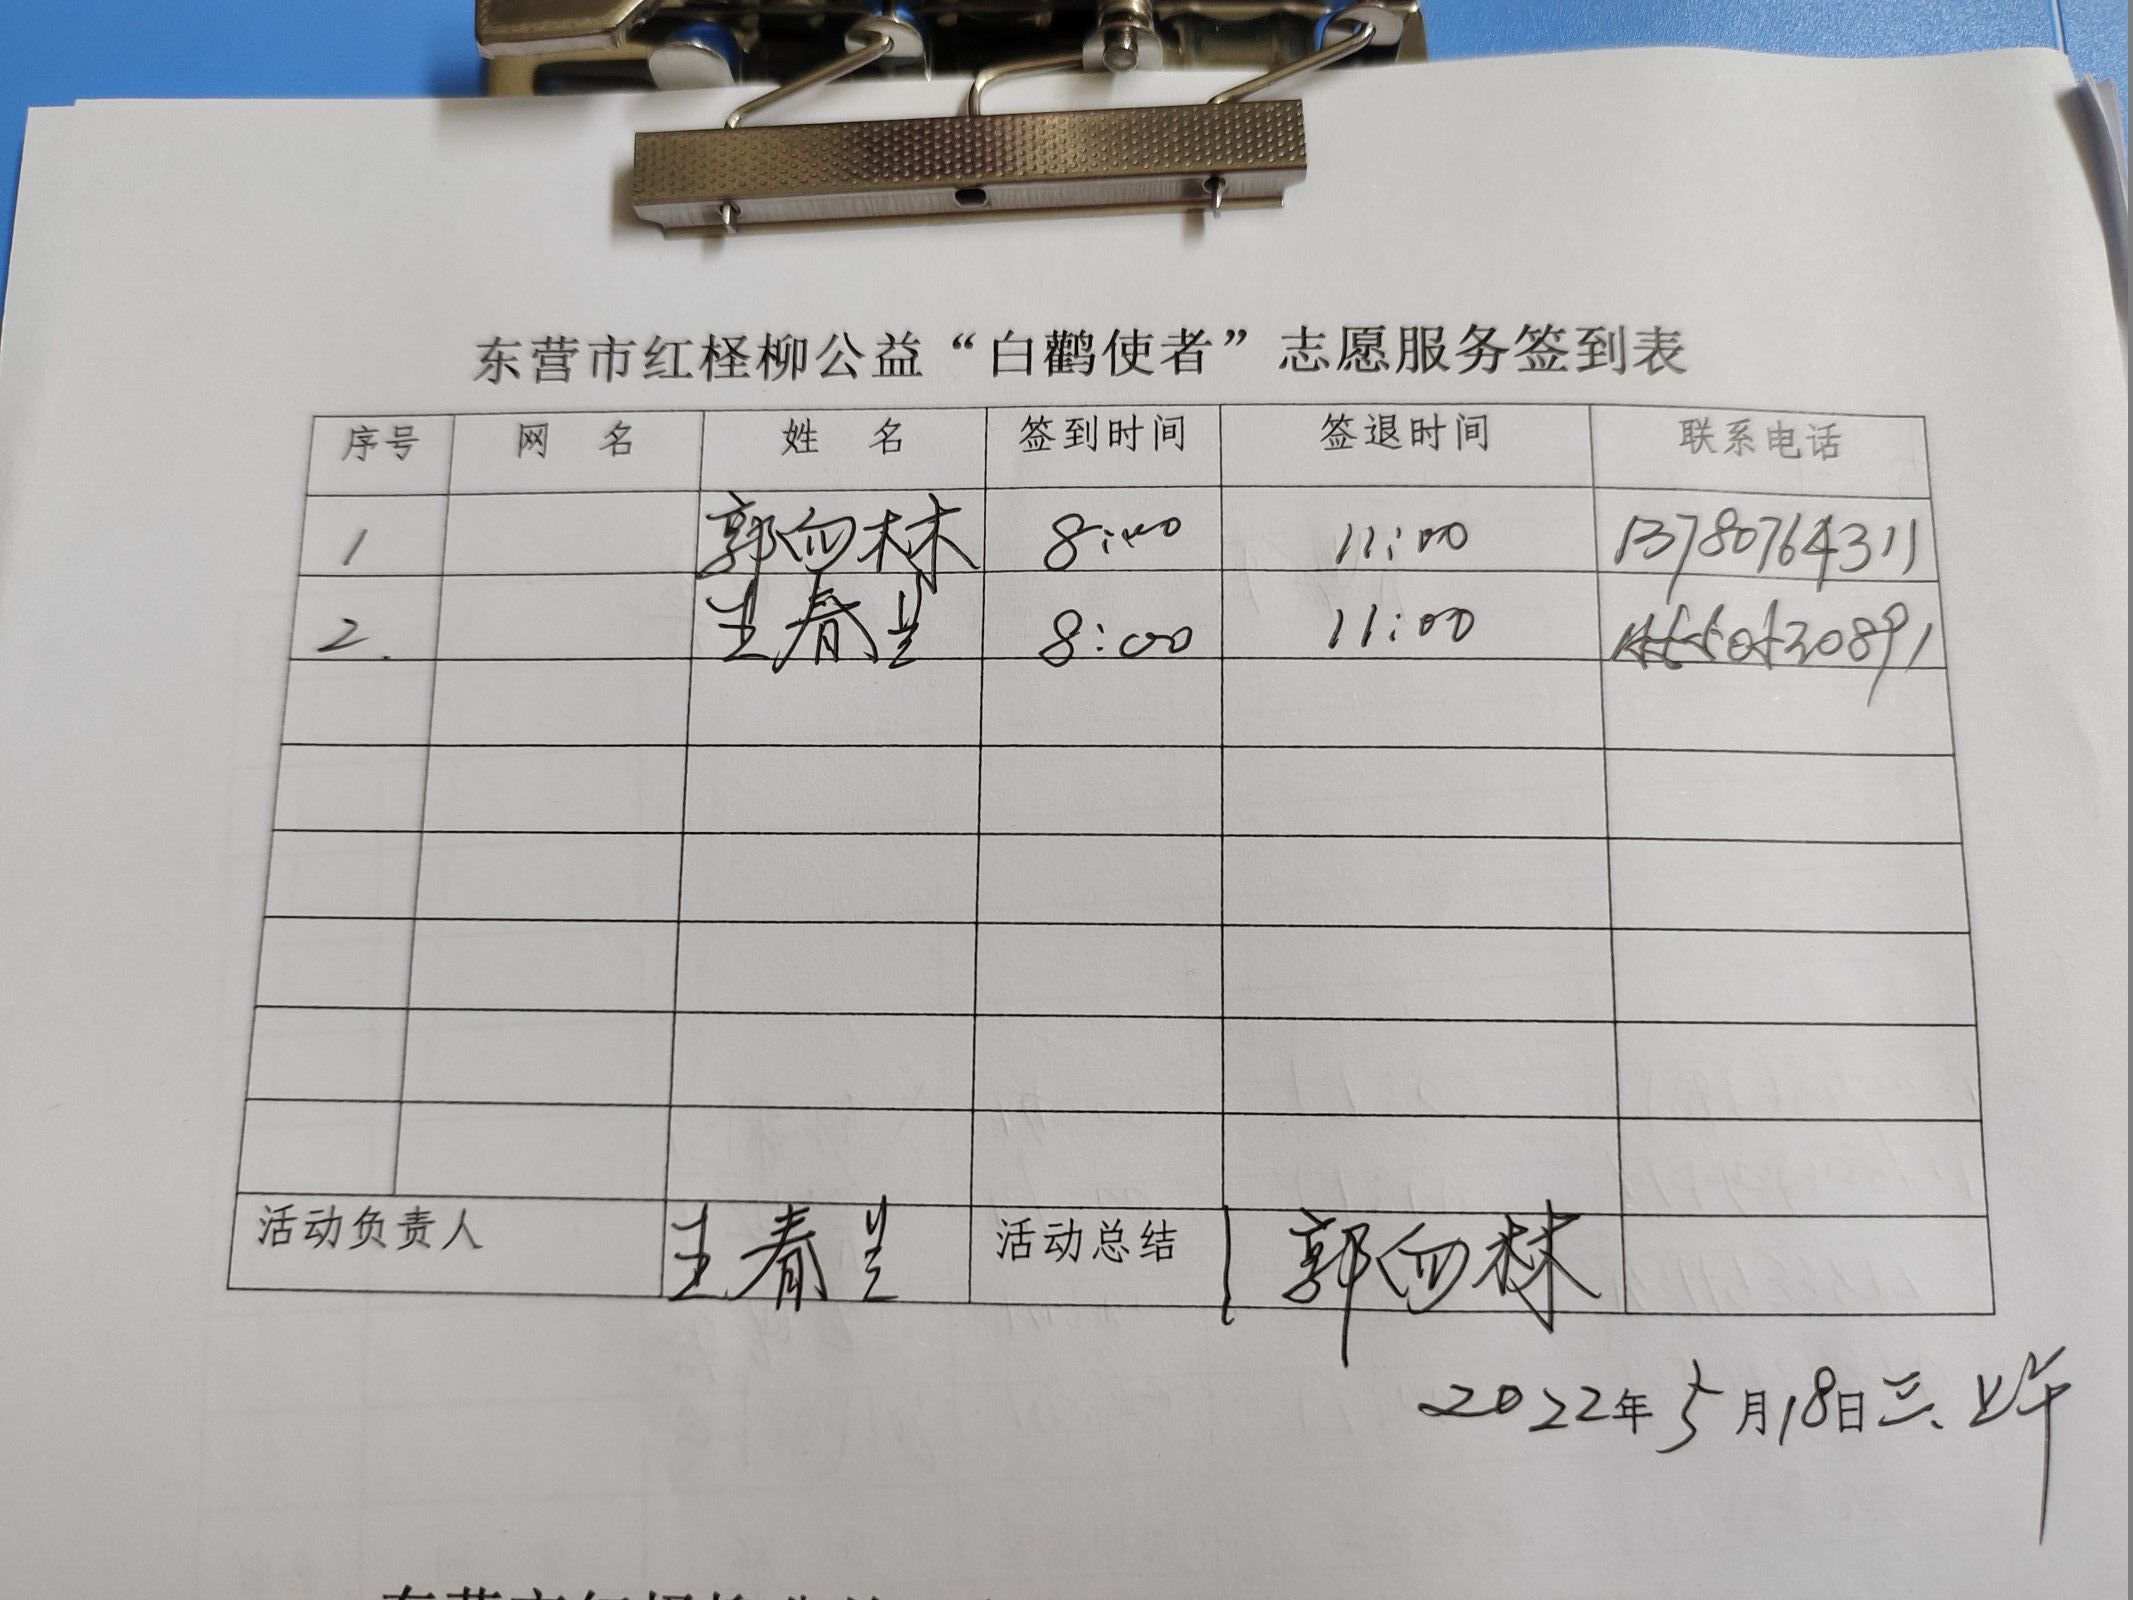 东营市红柽柳公益“白鹳使者”志愿服务签到表
序号 网 名 姓 名 签到时间 签退时间 联系电话
1 郭向林 8:00 11:00 13780764311
2. 王春兰 8:00 11:00
活动负责人 王春兰 活动总结 郭向林
2022年5月18日三、上午